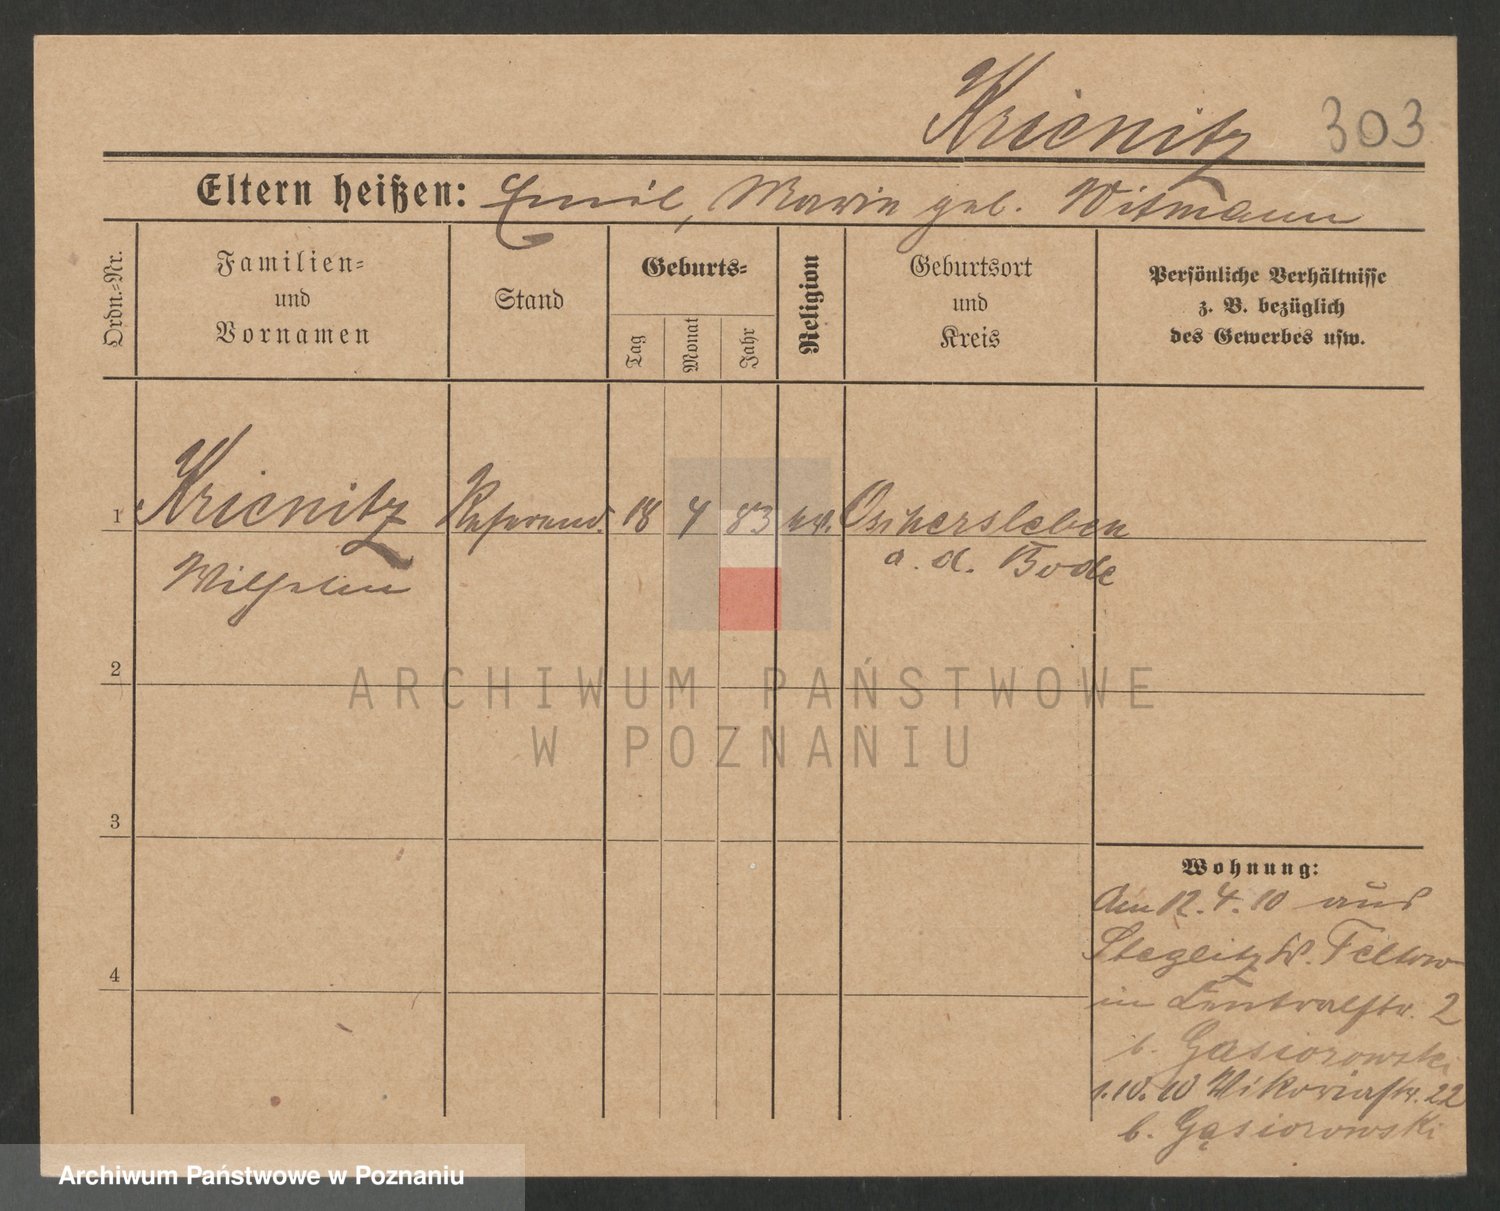 Krienitz 303
Eltern heißen: Emil, Marie geb. Witmann
Ordn.=Nr.
Familien=
und
Vornamen
Stand
Geburts=
Tag
Monat
Jahr
Religion
Geburtsort
und
Kreis
Persönliche Verhältnisse
z. B. bezüglich
des Gewerbes usw.
1 Krienitz Referend. 18 4 83 ev. Oschersleben
Wilhelm a. d. Bode
2
3
4
Wohnung:
Am 12.4.10 aus
Steglitz Kr. Teltow
in Centralstr. 2
b. Gąsiorowski
1.10.10 Vikoriastr. 22
b. Gąsiorowski
ARCHIWUM PAŃSTWOWE
W POZNANIU
Archiwum Państwowe w Poznaniu